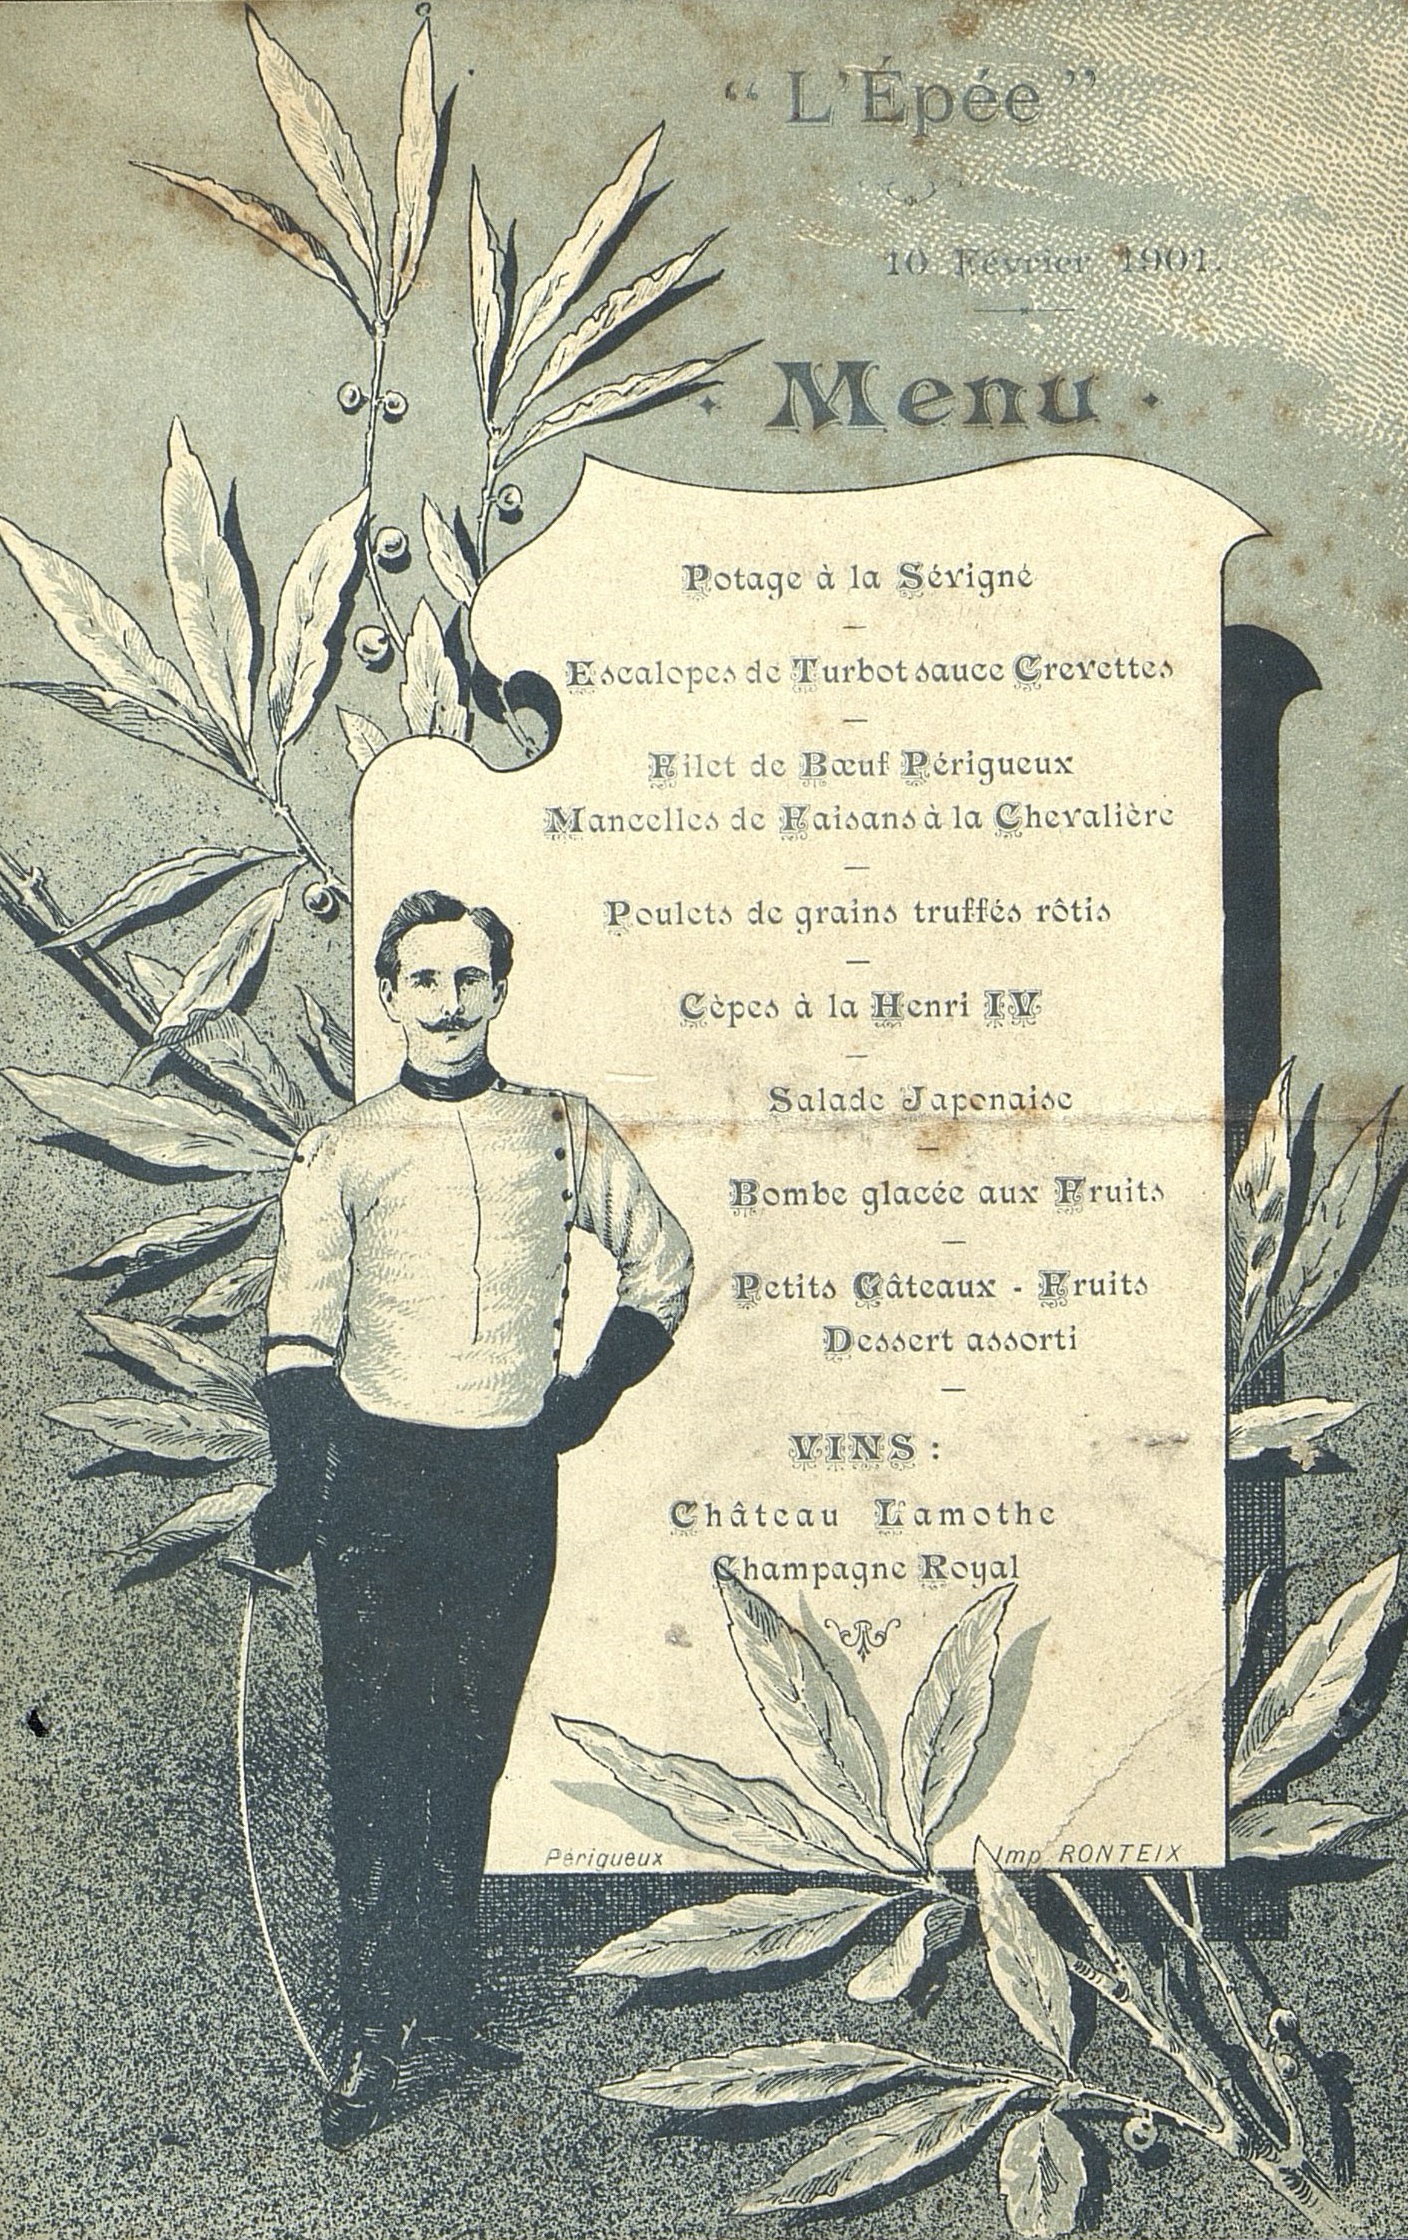 “ L'Épée ”
10 Février 1901.
Menu
Potage à la Sévigné
Escalopes de Turbot sauce Crevettes
Filet de Bœuf Périgueux
Mancelles de Faisans à la Chevalière
Poulets de grains truffés rôtis
Cèpes à la Henri IV
Salade Japonaise
Bombe glacée aux Fruits
Petits Gâteaux - Fruits
Dessert assorti
VINS :
Château Lamothe
Champagne Royal
Périgueux
Imp. RONTEIX